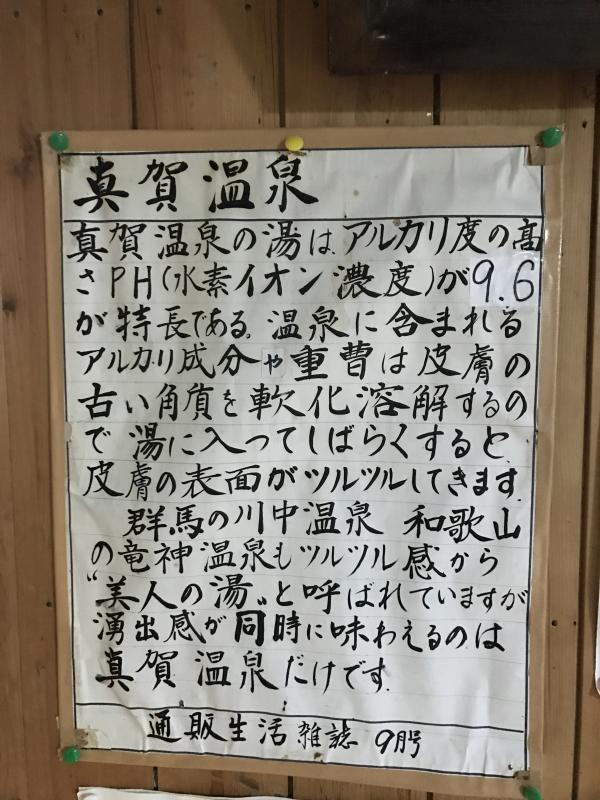 真賀温泉
真賀温泉の湯は、アルカリ度の高
さPH(水素イオン濃度)が9.6
が特長である。温泉に含まれる
アルカリ成分や重曹は皮膚の
古い角質を軟化溶解するの
で湯に入ってしばらくすると、
皮膚の表面がツルツルしてきます。
群馬の川中温泉 和歌山
の竜神温泉もツルツル感から
“美人の湯〟と呼ばれていますが
湧出感が同時に味わえるのは
真賀温泉だけです。
通販生活 雑誌 9月号